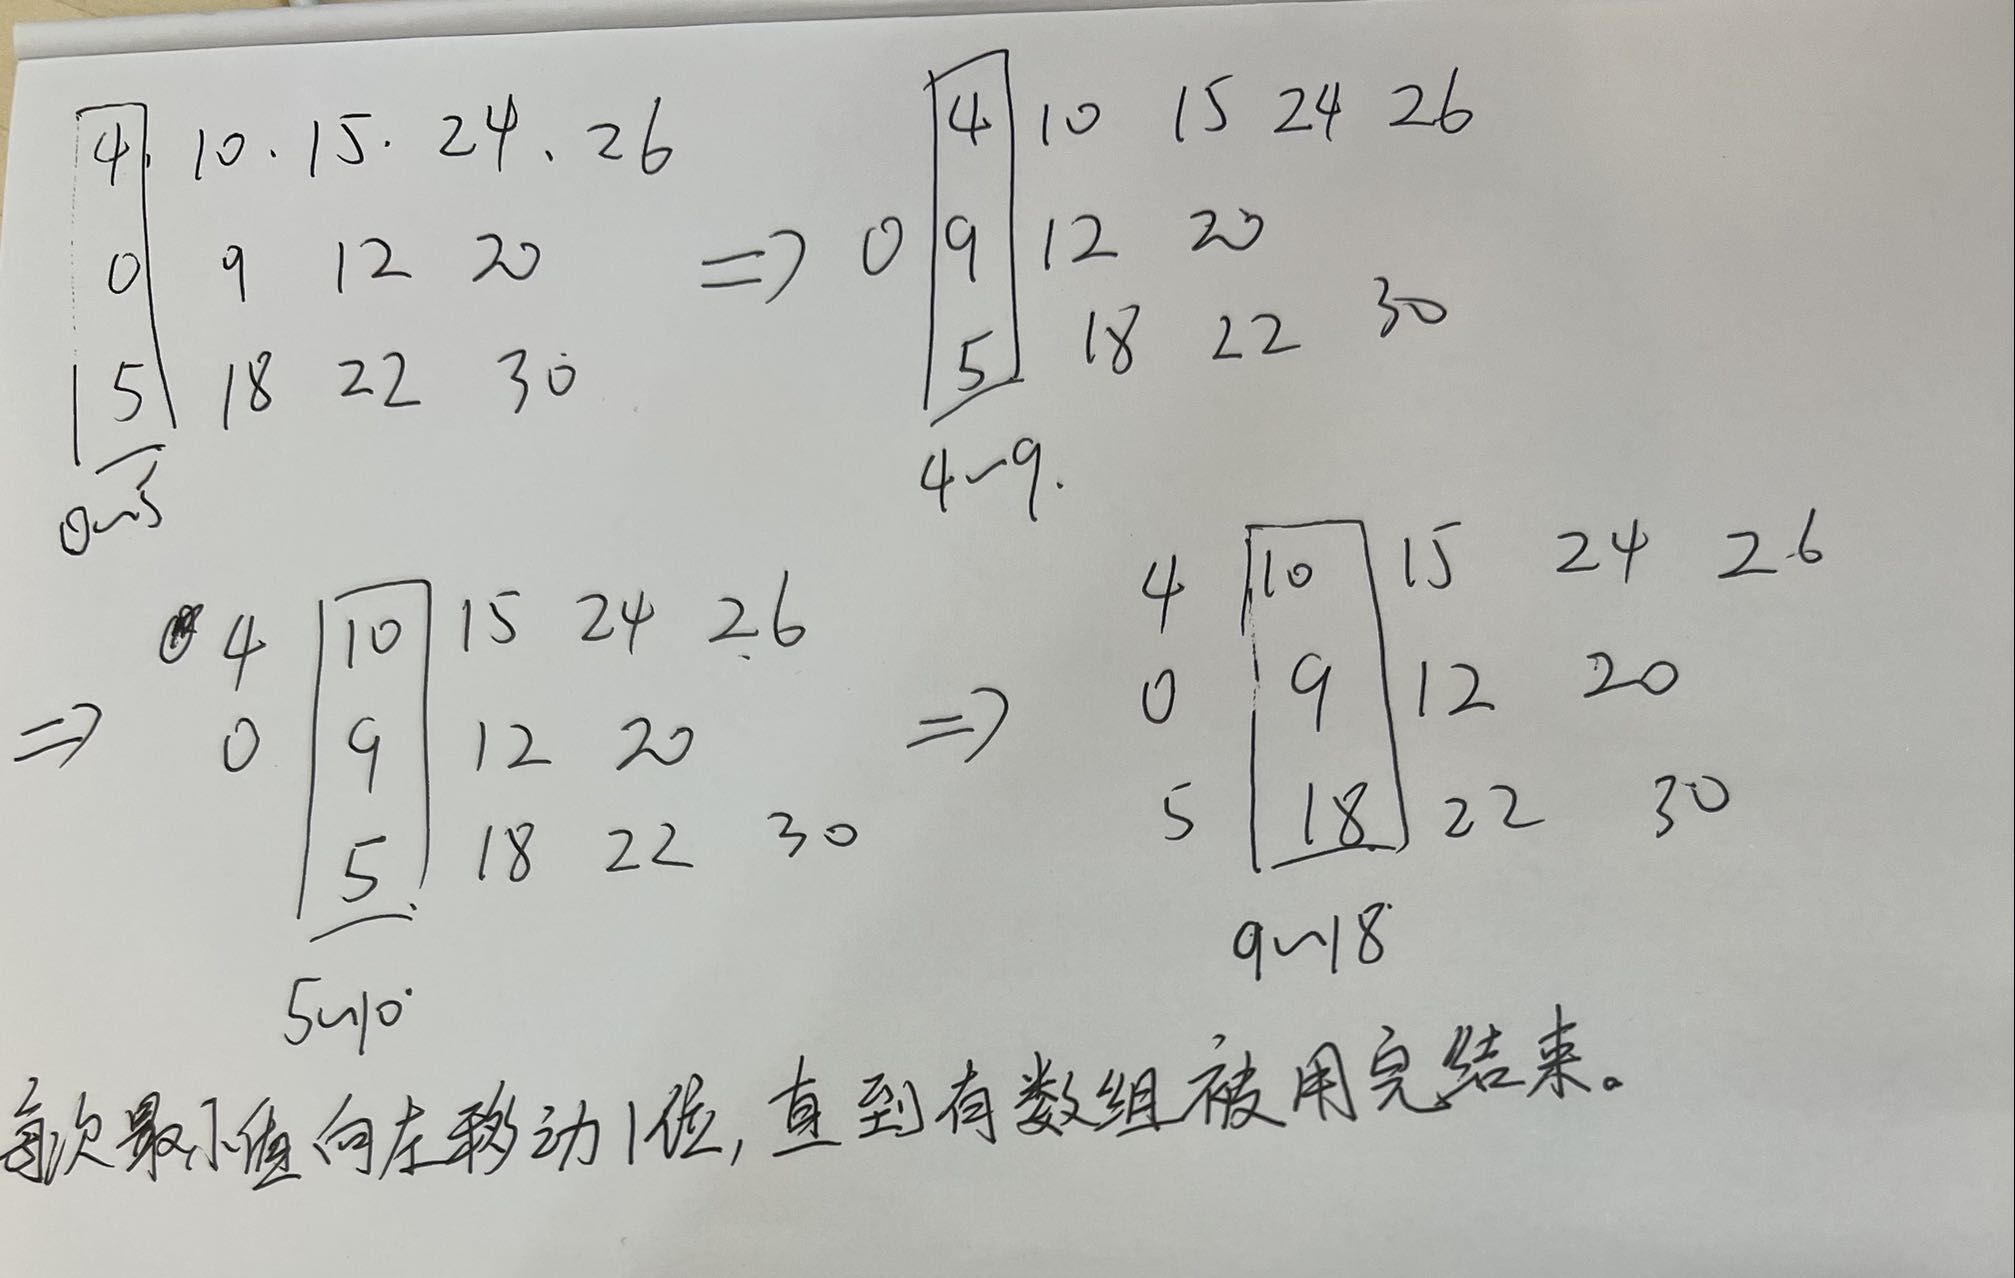 4. 10. 15. 24. 26
0 9 12 20
5 18 22 30
0~5
=>
4 10 15 24 26
0 9 12 20
5 18 22 30
4~9.
=>
4 10 15 24 26
0 9 12 20
5 18 22 30
5~10
=>
4 10 15 24 26
0 9 12 20
5 18 22 30
9~18
每次最小值向左移动1位，直到有数组被用完结束。